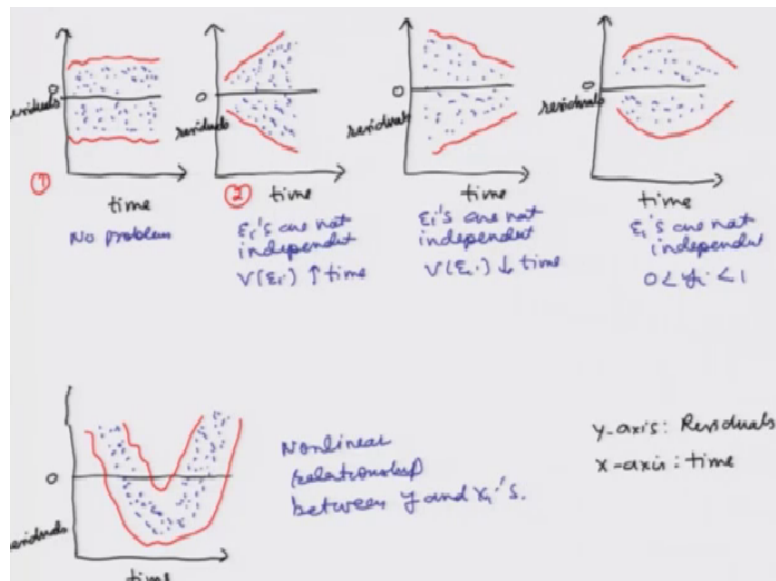 0
residuals
①
time
No problem
0
residuals
②
time
εi's are not
independent
V(εi) ↑ time
0
residuals
time
εi's are not
independent
V(εi) ↓ time
0
residuals
time
εi's are not
independent
0 < yi < 1
0
esiduals
time
Nonlinear
relationship
between y and xi's.
y-axis: Residuals
x-axis: time